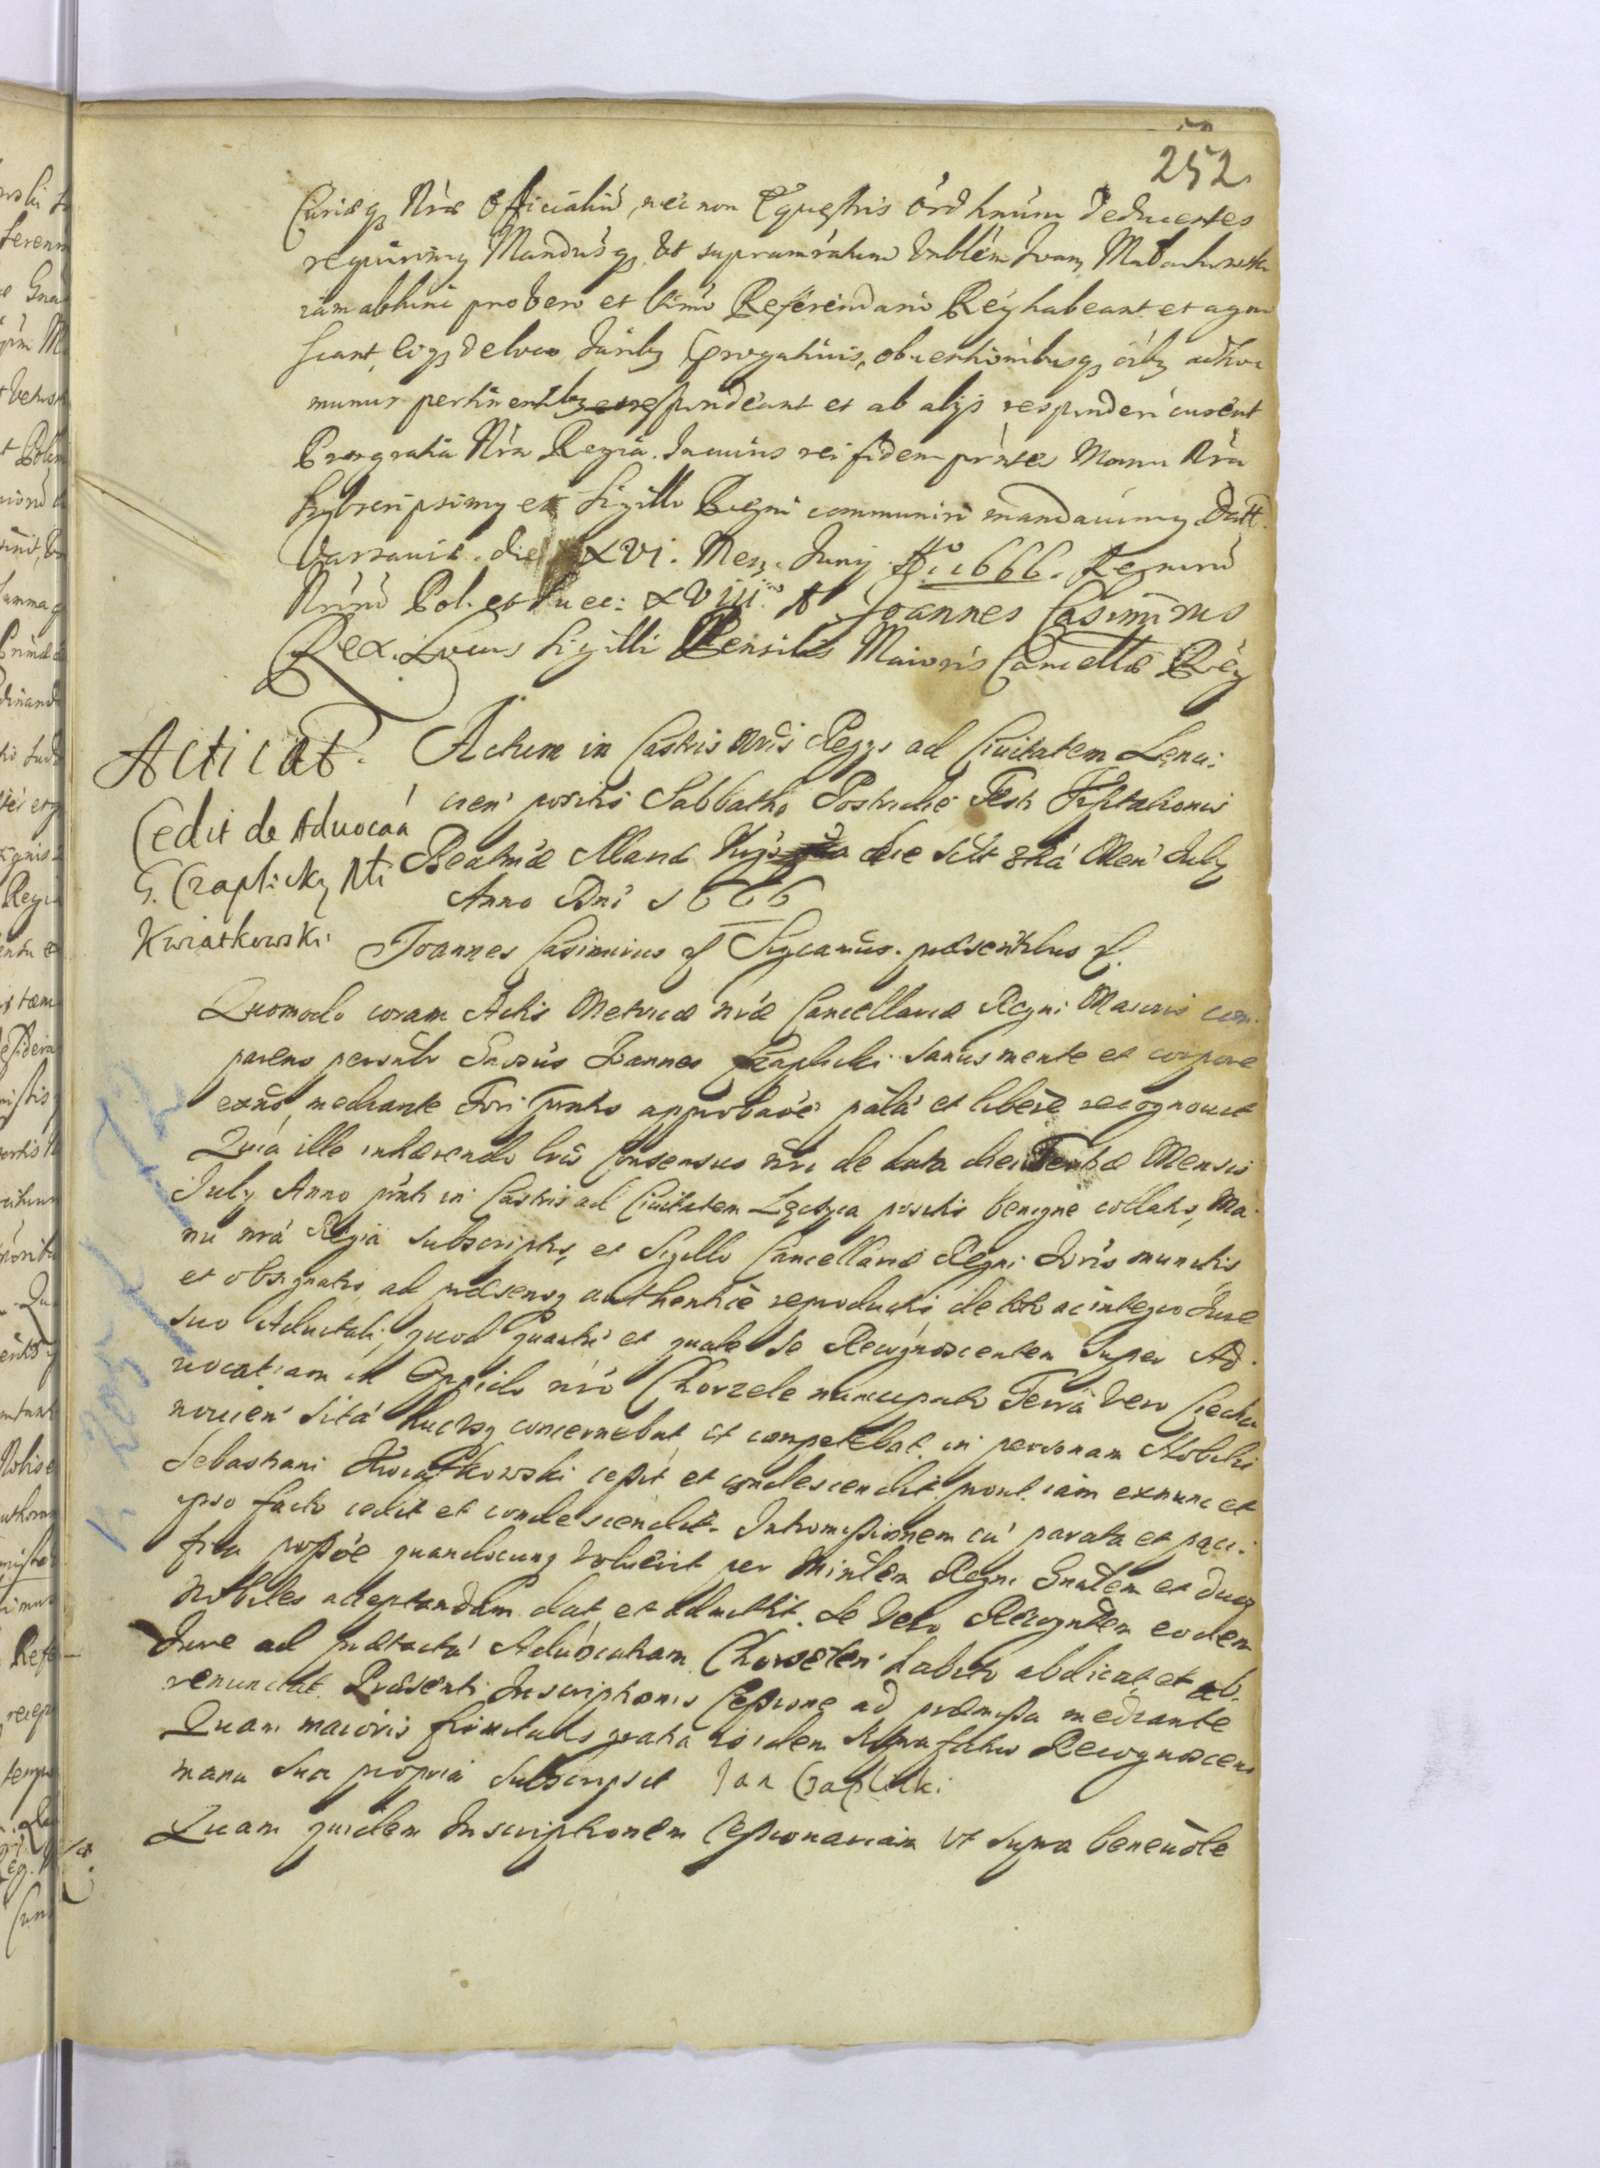 252
Curiæq Nræ Officialiũ, nec non Equestris Ordĩnũm deducentes
requirimq Mandũsq, Ut supramrãtum Vnblẽm Ioan Małachowski
iam abhinc pro vero et ltmo Referendario Rẽg habeant et agno
scant, eiq de loco Iuribq Prærogativis, obventionibusq õibq ad hoc
munus pertinentibq respondeant et ab alijs responderi curent
Pro gratia Nrã Regia. In cuius rei fidem prãtes Manu Nrã
subscripsimq et Sigillo Regni communiri mandavimq. Datt
Varsaviæ. die XVI. Mens. Junij Ao. 1666. Regnorũ
Nrõrũ Pol. et Suec: XVIII. A Joannes Casimirus
Rex. Locus Sigilli Pensilis Maioris Cancellæ Rẽg
Acticat.
Cedit de Advocaa
G. Czaplicky Nli
Kwiatkowski
Actum in Castris nris Regys ad Civitatem Lenci:
cien positis Sabbatho Postridie Festi Visitationis
Beatmæ Mariæ Virgs die scilt 3tiá Men July
Anno Dni 1666
Joannes Casimirus & Significamus. præsentibus &.
Quomodo coram Actis Metricæ nræ Cancellariæ Regni Maioris com-
parens personlr Gnosus Joannes Czaplicki sanus mente et corpore
exñs, mediante Fori prntis approbaõe palã et libere recognovit
Quia ille inhærendo lris Consensus nri de data diei Tertiæ Mensis
July Anno prnti in Castris ad Civitatem Lęczyca positis benigne collatis, Ma-
nu nrá Regiã subscriptis, et Sigillo Cancellariæ Regni Ioris munitis
et obsignatis, ad præsensq authentice reproductis, de toto ac integro Iure
suo Advitali, quod quantũ et quale se Recognoscentem super Ad-
vocatiam in Oppido nrõ Chorzele nuncupato Terrã vero Ciecha
novien sitá hucusq concernebat et competebat. in personam Nobilis
Sebastiani Kwiatkowski cessit et condescendit. prout. iam exnunc et
ipso facto cedit et condescendit. Intromissionem cũ parata et paci-
fica possõe quandocunq voluerit per Ministlem Regni Gnãlem et duos
Nobiles adeptandam dat et admittit. Se vero Recogntem eodem
Iure ad prætactã Advocatiam Chorzelen. habito abdicat et ab-
renunciat. Præsenti Inscriptionis Cessione ad præmissa mediante
Quam maioris firmitatis gratia isidem Suprafatus Recognoscens
manu sua propria subscripsit Jan Czaplicki
Quam quidem Inscriptionem Cessionariam Vt Supra benevole